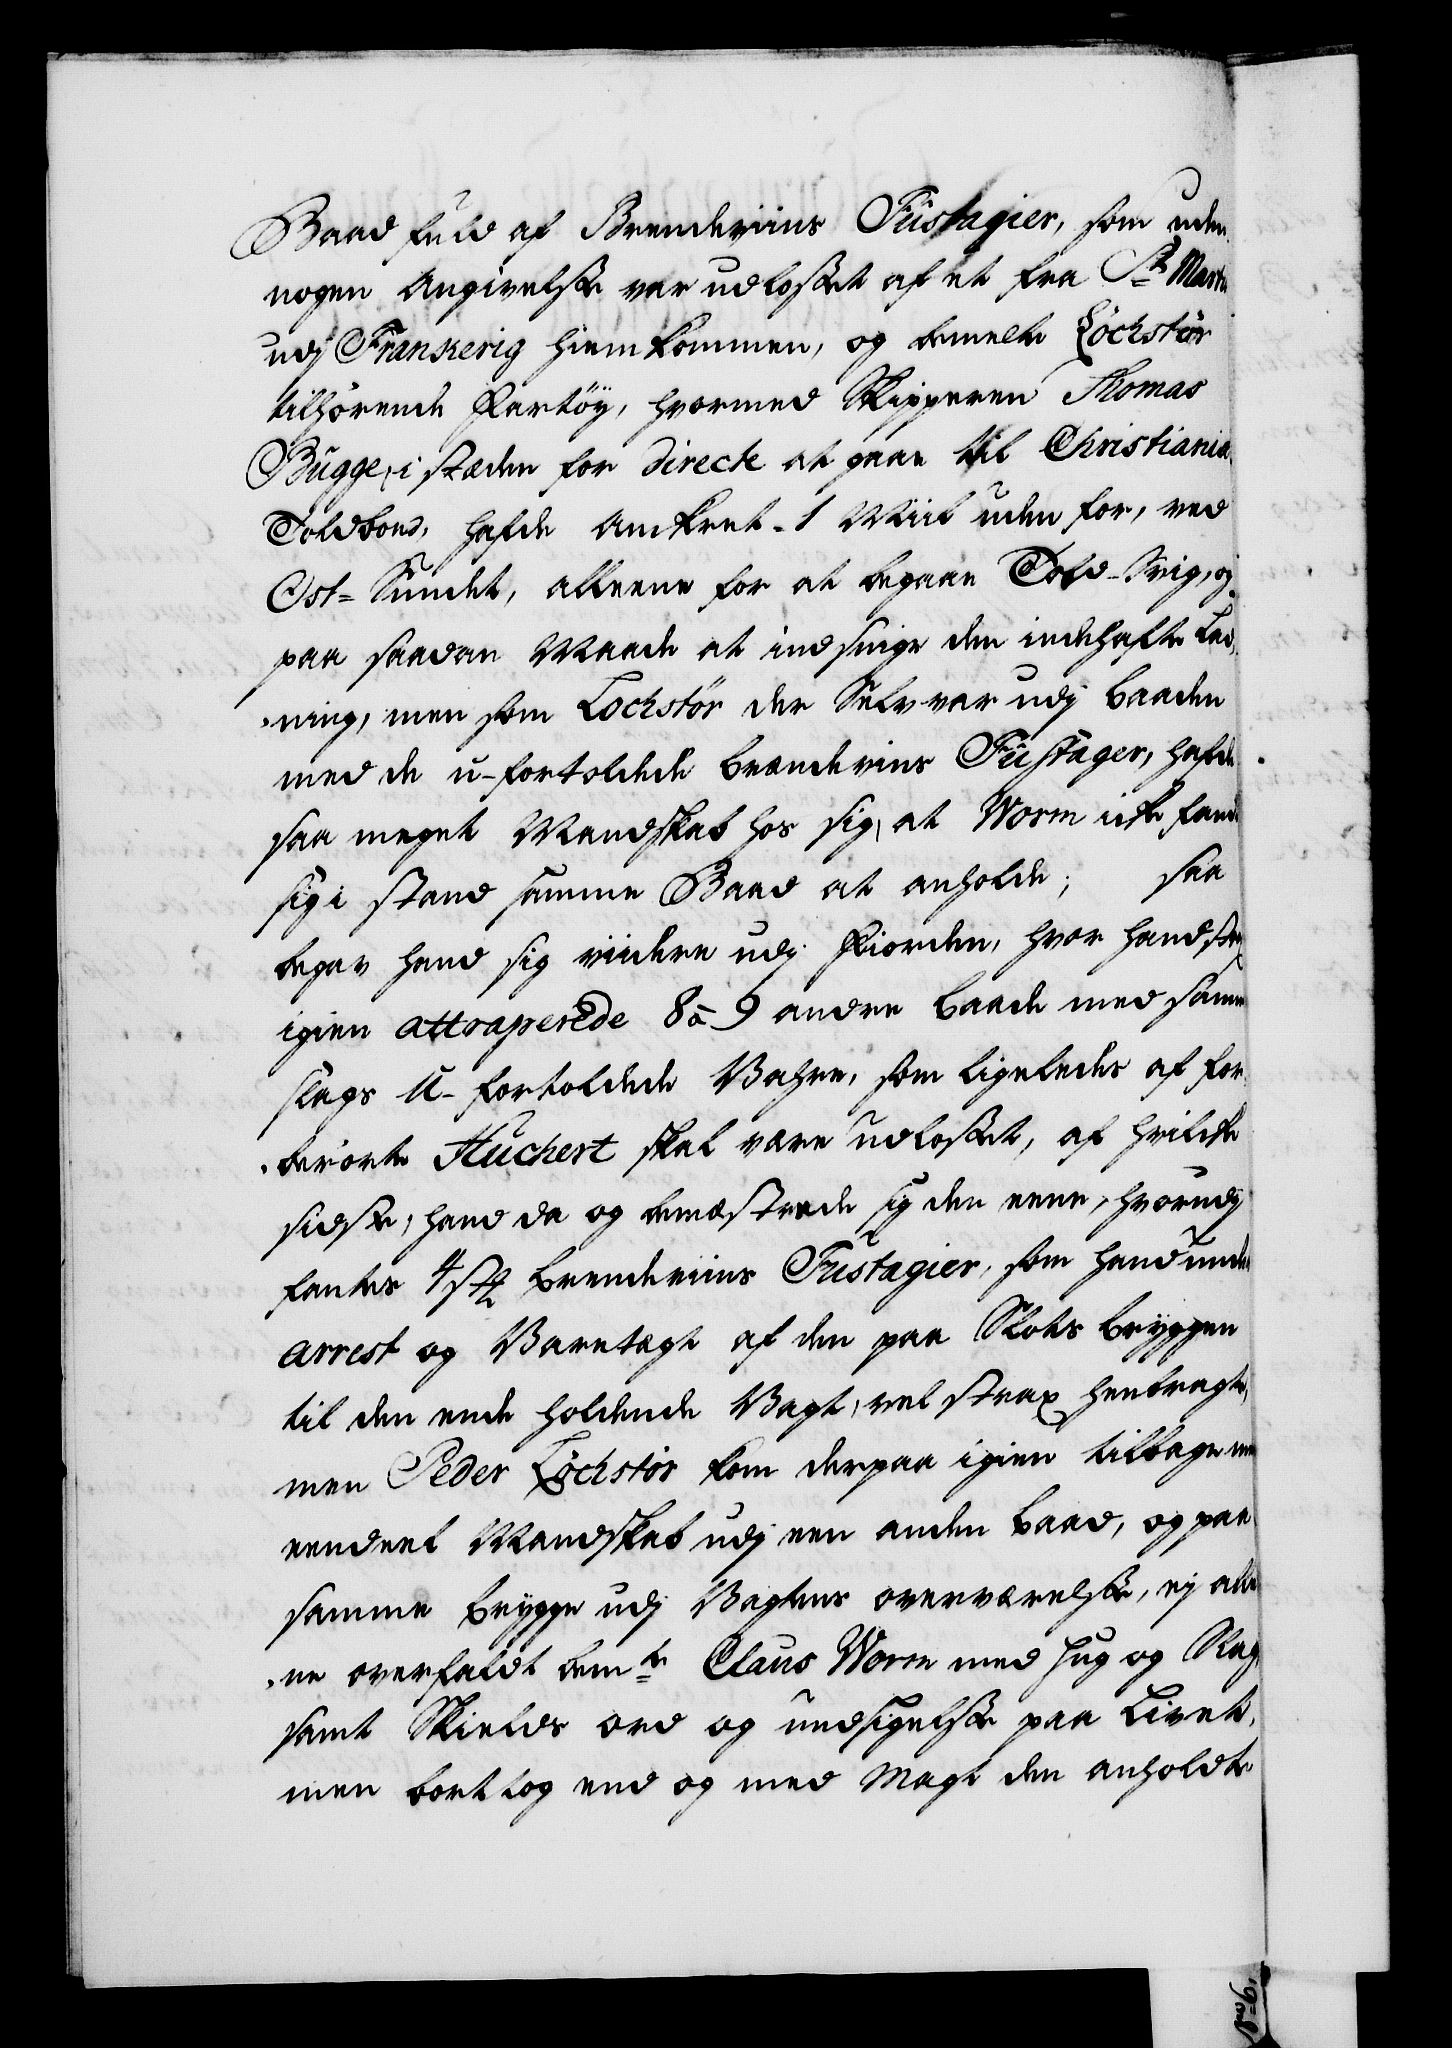 Baad fuld af Brendeviins Fustagier, som uden
nogen Angivelse var udlosset af et fra St Martin
udj Frankerig hiemkommen, og bemelte Löchstör
tilhörende Fartöy, hvormed Skipperen Thomas
Bugge, i stæden for directe at gaae til Christiania
Toldboed, hafde Ankret 1 Miil uden for, ved
Ost-Sundet, alleene for at begaae Told-Svig, og
paa saadan Maade at indsnige den indehafte Lad¬
ning, men som Lochstör der Selv var udj baaden
med de u-fortoldede brændeviins Fustager, hafde
saa meget Mandskab hos sig, at Worm icke fandt
sig i stand samme Baad at anholde; saa
begav hand sig viidere udj Fiorden, hvor hand strax
igien attraperede 8 à 9 andre baade med samme
slags U-fortoldede Vahre, som ligeledes af for¬
berörte Huckert skal være udlosset, af hvilcke
sidste, hand da og bemæstrede sig den eene, hvorudj
fantes 4 stk brendeviins Fustagier, som hand under
arrest og Varetægt af den paa Slots bryggen
til den ende holdende Vagt, vel strax henbragte,
men Peder Löchstör kom derpaa igien tilbage med
eendeel Mandskab udj een anden baad, og paa
samme brygge udj Vagtens overværelse, ej alle¬
ne overfaldt bemte Claus Worm med hug og Slag
samt Skields ord og undsigelse paa Livet,
men borttog end og med Magt den anholdte